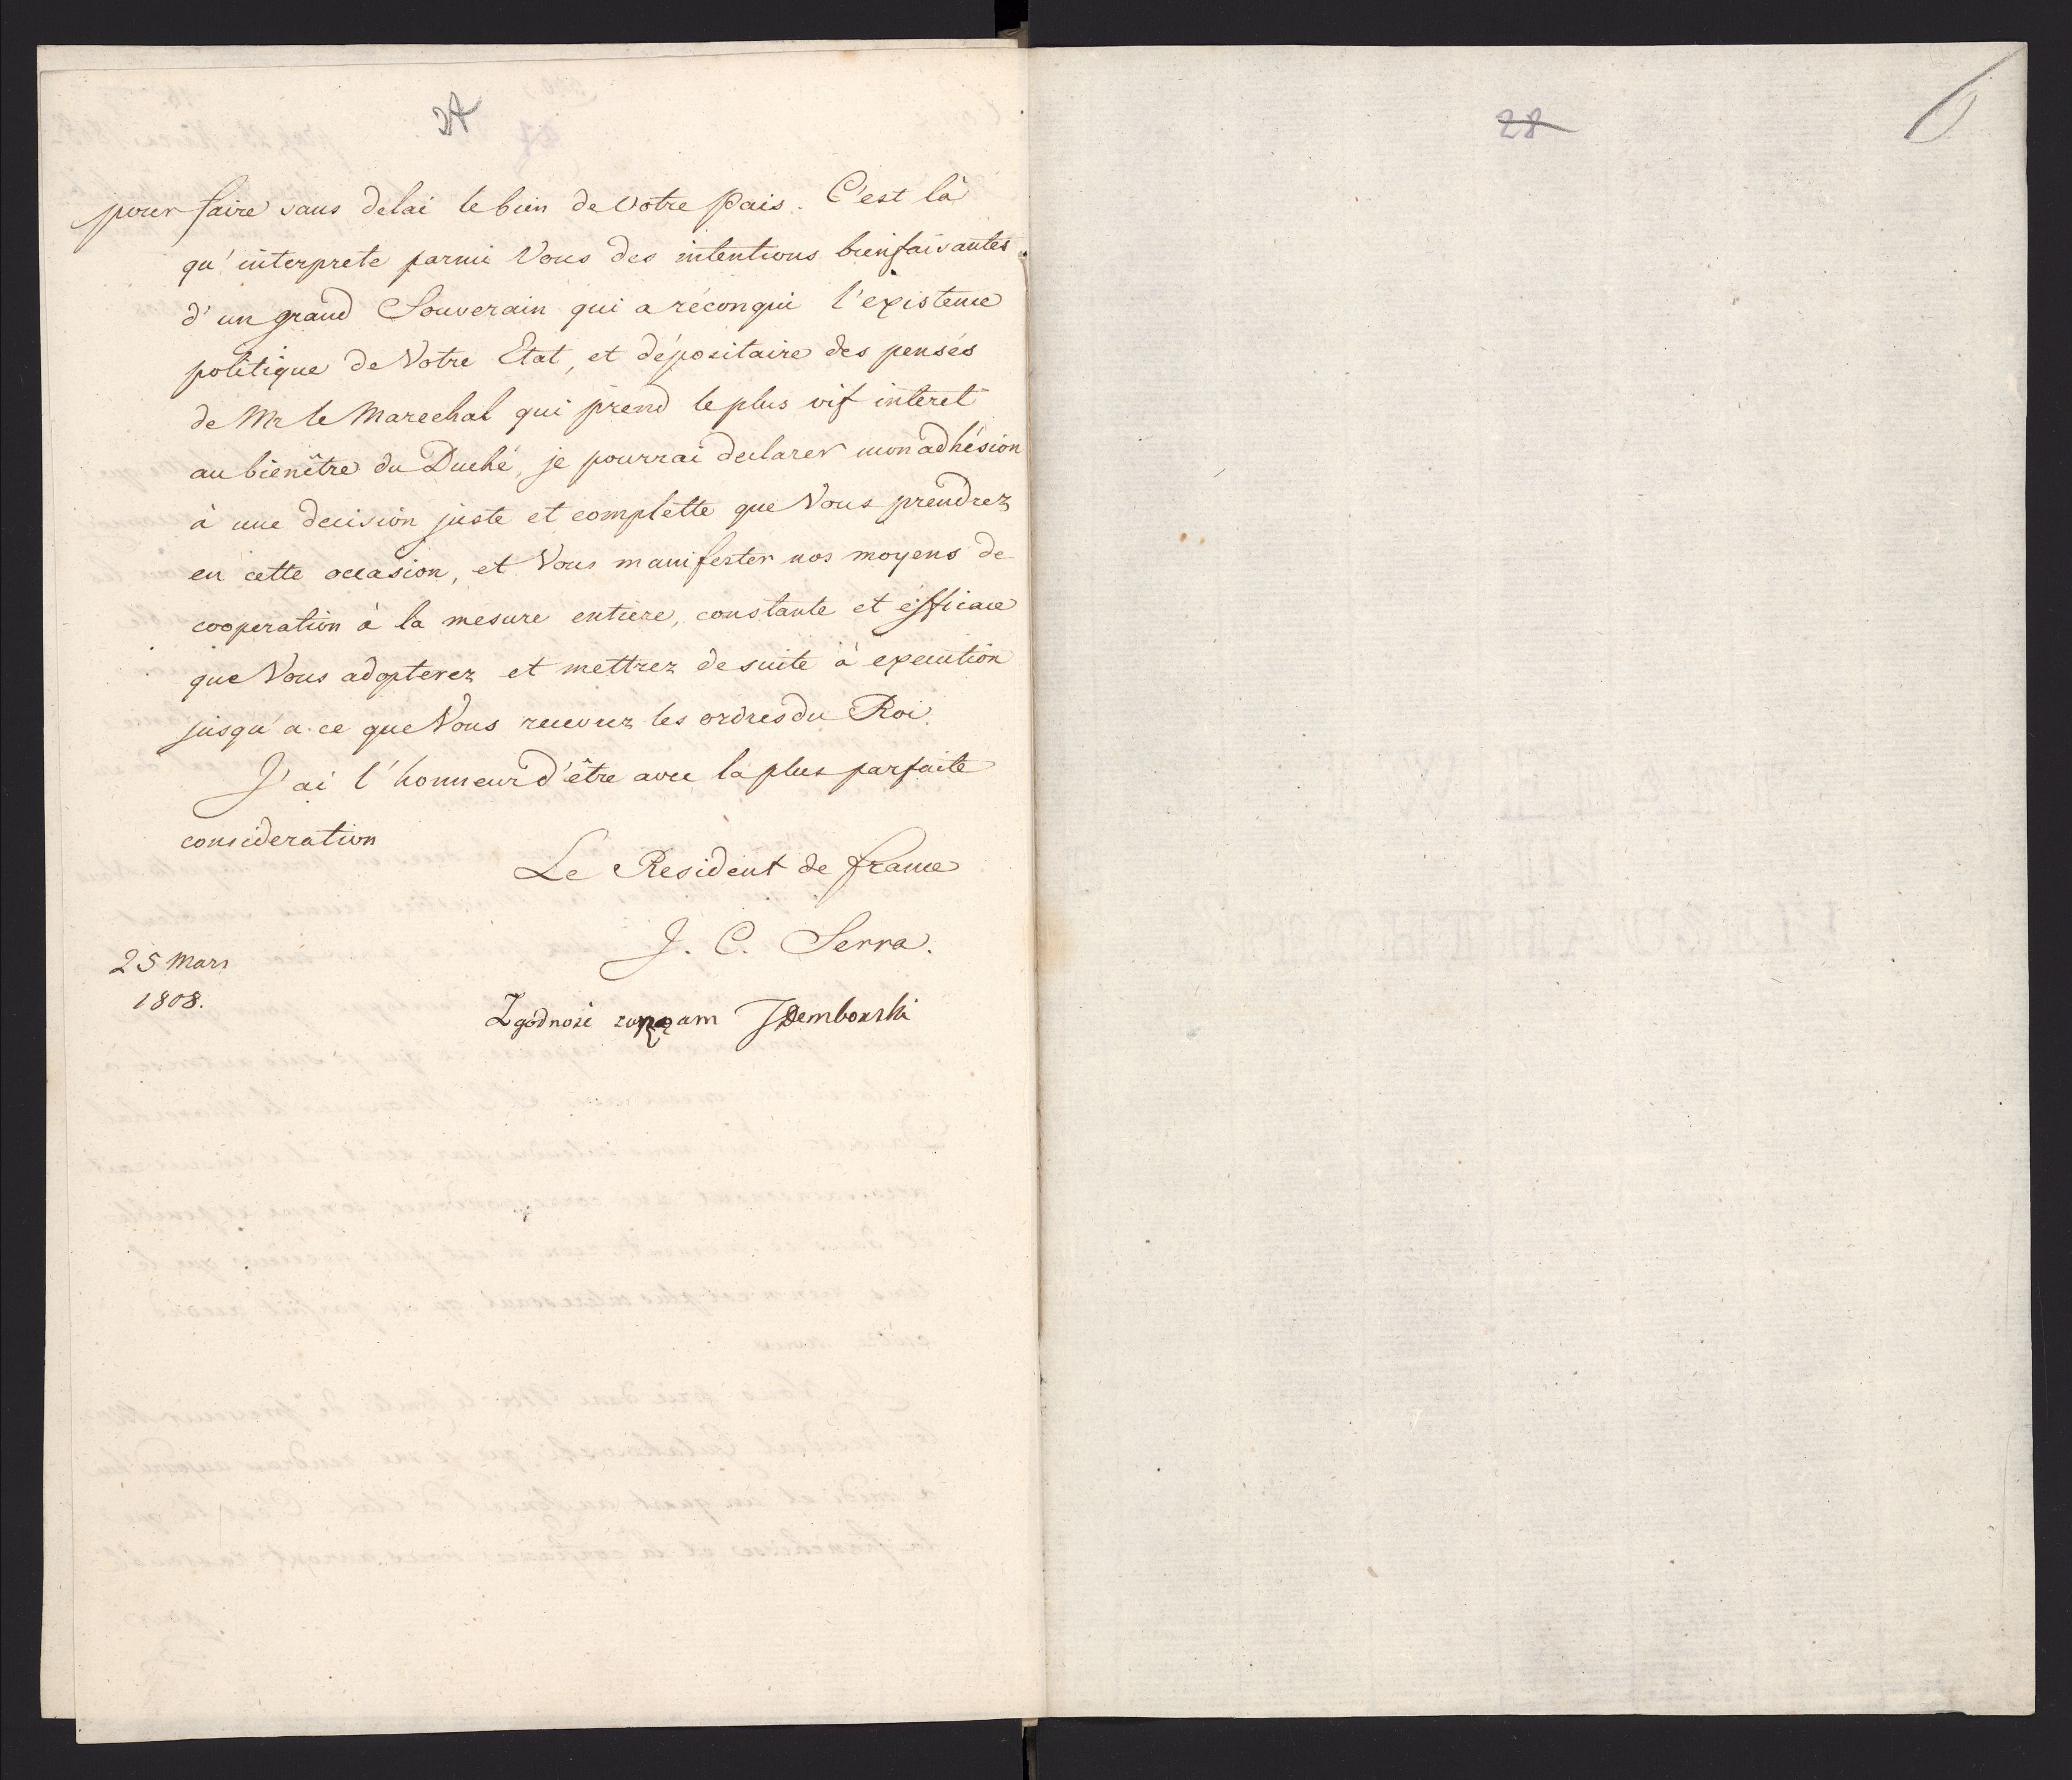 pour faire sans delai le bien de Votre Pais. C'est là
qu'interprete parmi Vous des intentions bienfaisantes
d'un grand Souverain qui a réconqui l'existence
politique de Votre Etat, et dépositaire des pensés
de Mr le Marechal qui prend le plus vif interet
au bienêtre du Duché, je pourrai declarer mon adhésion
à une decision juste et complètte que Vous prendrez
en cette occasion, et Vous manifester nos moyens de
cooperation à la mesure entiere, constante et efficace
que Vous adopterez et mettrez de suite à execution
jusqu'a ce que Vous recevrez les ordres du Roi.
J'ai l'honneur d'être avec la plus parfaite
consideration
Le Resident de france
J. C. Serra.
25 Mars
1808.
Zgodność Dembowski
28
6